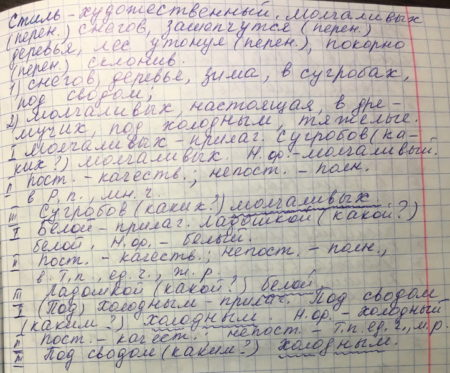 Стиль - художественный. Молчаливых
(перен.) снегов, зашепчутся (перен.)
деревья, лес утонул (перен.), покорно
(перен.) склонив.
1) снегов, деревье, зима, в сугробах,
под сводом;
2) молчаливых, настоящая, в дре-
мучих, под холодным, тяжелые.
I Молчаливых - прилаг. Сугробов (ка-
ких?) молчаливых. Н.ф. - молчаливый.
II Пост. - качеств.; непост. - полн.
в Р.п., мн.ч.
III Сугробов (каких?) молчаливых.
I Белой - прилаг. Ладошкой (какой?)
белой, н.ф. - белый.
II Пост. - качеств.; непост. - полн.,
в Т.п., ед.ч., ж.р.
III Ладошкой (какой?) белой
I (Под) холодным - прилаг. Под сводом
(каким?) холодным. Н.ф. - холодный
II Пост. - качест.; непост. - Т.п. ед.ч., м.р.
III Под сводом (каким?) холодным.